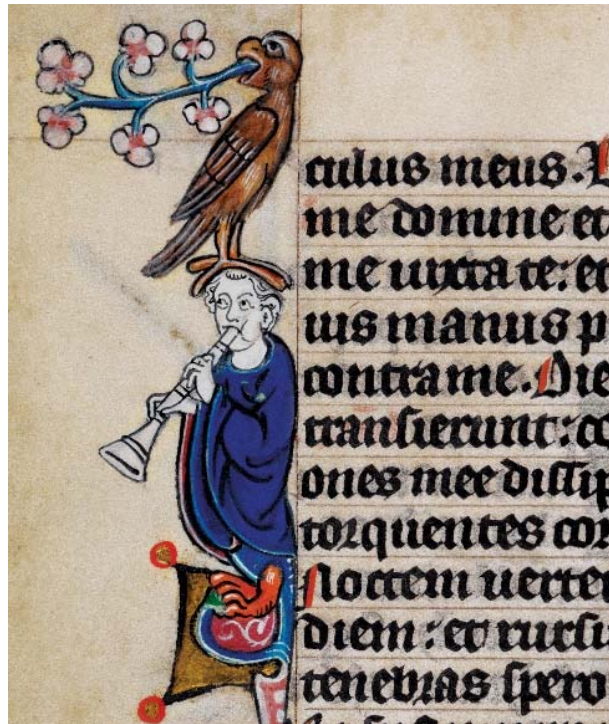 culus meus.
me domine et
me iuxta te: et
uis manus p
contra me. Die
transierunt: co
ones mee dissip
torquentes cor
Noctem uerte
diem: et rursu
tenebras spero